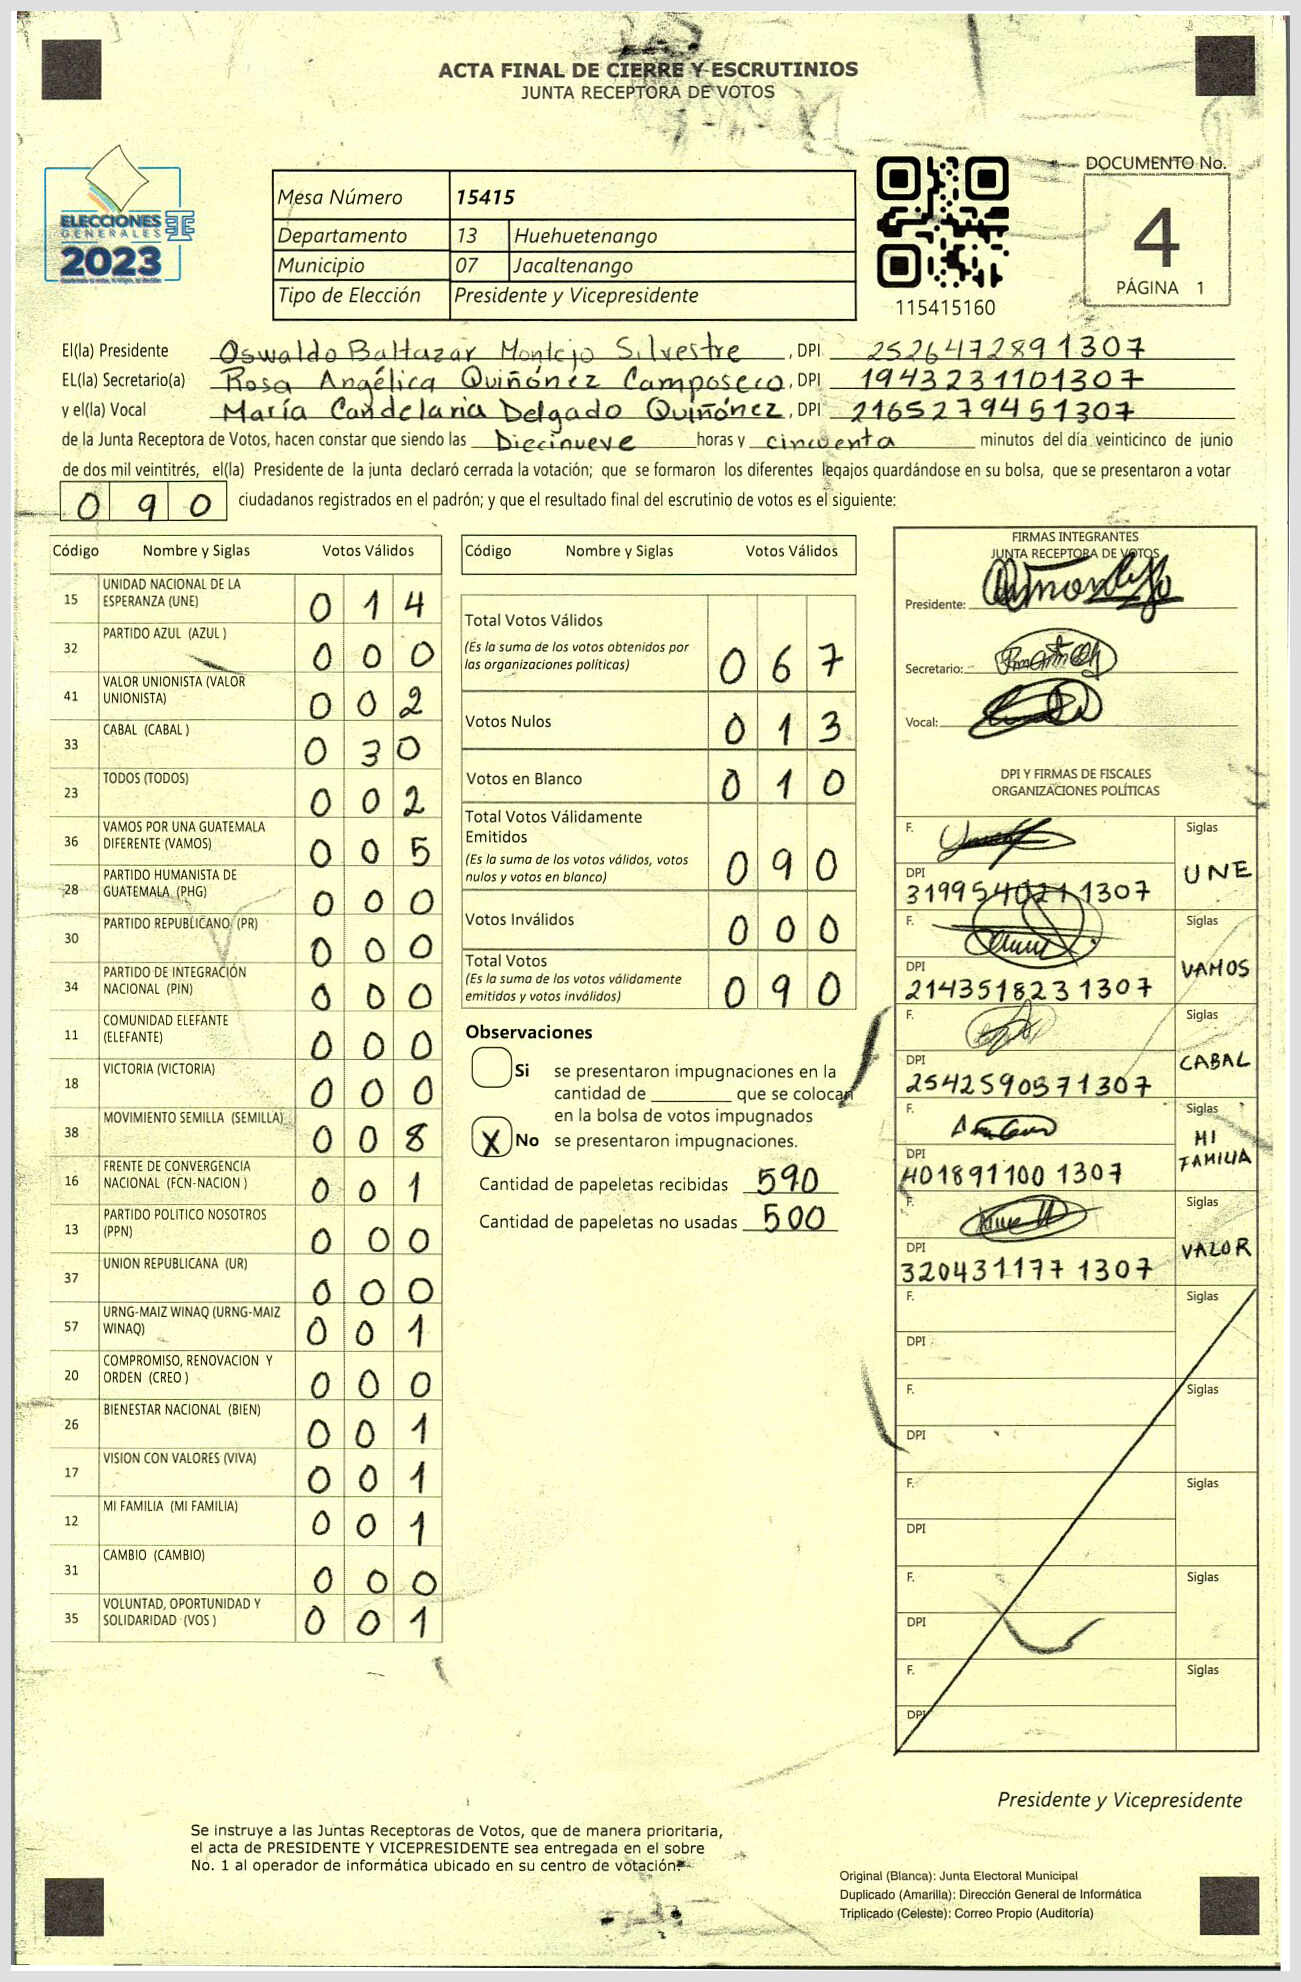 ACTA FINAL DE CIERRE Y ESCRUTINIOS
JUNTA RECEPTORA DE VOTOS
ELECCIONES
GENERALES
2023
Mesa Número 15415
Departamento 13 Huehuetenango
Municipio 07 Jacaltenango
Tipo de Elección Presidente y Vicepresidente
115415160
DOCUMENTO No.
4
PÁGINA 1
El(la) Presidente Oswaldo Baltazar Montejo Silvestre, DPI 2526472891307
EL(la) Secretario(a) Rosa Angélica Quiñónez Camposeco, DPI 1943231101307
y el(la) Vocal María Candelaria Delgado Quiñónez, DPI 2165279451307
de la Junta Receptora de Votos, hacen constar que siendo las Diecinueve horas y cincuenta minutos del día veinticinco de junio
de dos mil veintitrés, el(la) Presidente de la junta declaró cerrada la votación; que se formaron los diferentes legajos guardándose en su bolsa, que se presentaron a votar
090 ciudadanos registrados en el padrón; y que el resultado final del escrutinio de votos es el siguiente:
Código Nombre y Siglas Votos Válidos
15 UNIDAD NACIONAL DE LA ESPERANZA (UNE) 014
32 PARTIDO AZUL (AZUL ) 000
41 VALOR UNIONISTA (VALOR UNIONISTA) 002
33 CABAL (CABAL ) 030
23 TODOS (TODOS) 002
36 VAMOS POR UNA GUATEMALA DIFERENTE (VAMOS) 005
28 PARTIDO HUMANISTA DE GUATEMALA (PHG) 000
30 PARTIDO REPUBLICANO (PR) 000
34 PARTIDO DE INTEGRACIÓN NACIONAL (PIN) 000
11 COMUNIDAD ELEFANTE (ELEFANTE) 000
18 VICTORIA (VICTORIA) 000
38 MOVIMIENTO SEMILLA (SEMILLA) 008
16 FRENTE DE CONVERGENCIA NACIONAL (FCN-NACION ) 001
13 PARTIDO POLITICO NOSOTROS (PPN) 000
37 UNION REPUBLICANA (UR) 000
57 URNG-MAIZ WINAQ (URNG-MAIZ WINAQ) 001
20 COMPROMISO, RENOVACION Y ORDEN (CREO ) 000
26 BIENESTAR NACIONAL (BIEN) 001
17 VISION CON VALORES (VIVA) 001
12 MI FAMILIA (MI FAMILIA) 001
31 CAMBIO (CAMBIO) 000
35 VOLUNTAD, OPORTUNIDAD Y SOLIDARIDAD (VOS ) 001
Código Nombre y Siglas Votos Válidos
Total Votos Válidos
(Es la suma de los votos obtenidos por
las organizaciones políticas) 067
Votos Nulos 013
Votos en Blanco 010
Total Votos Válidamente
Emitidos
(Es la suma de los votos válidos, votos
nulos y votos en blanco) 090
Votos Inválidos 000
Total Votos
(Es la suma de los votos válidamente
emitidos y votos inválidos) 090
Observaciones
Si se presentaron impugnaciones en la
cantidad de ________ que se colocan
en la bolsa de votos impugnados
X No se presentaron impugnaciones.
Cantidad de papeletas recibidas 590
Cantidad de papeletas no usadas 500
FIRMAS INTEGRANTES
JUNTA RECEPTORA DE VOTOS
Presidente:
Secretario:
Vocal:
DPI Y FIRMAS DE FISCALES
ORGANIZACIONES POLÍTICAS
F. Siglas
UNE
DPI
3199540211307
F. Siglas
VAMOS
DPI
2143518231307
F. Siglas
CABAL
DPI
2542590571307
F. Siglas
MI
FAMILIA
DPI
4018911001307
F. Siglas
VALOR
DPI
3204311771307
F. Siglas
DPI
F. Siglas
DPI
F. Siglas
DPI
F. Siglas
DPI
F. Siglas
DPI
Presidente y Vicepresidente
Se instruye a las Juntas Receptoras de Votos, que de manera prioritaria,
el acta de PRESIDENTE Y VICEPRESIDENTE sea entregada en el sobre
No. 1 al operador de informática ubicado en su centro de votación.
Original (Blanca): Junta Electoral Municipal
Duplicado (Amarilla): Dirección General de Informática
Triplicado (Celeste): Correo Propio (Auditoría)